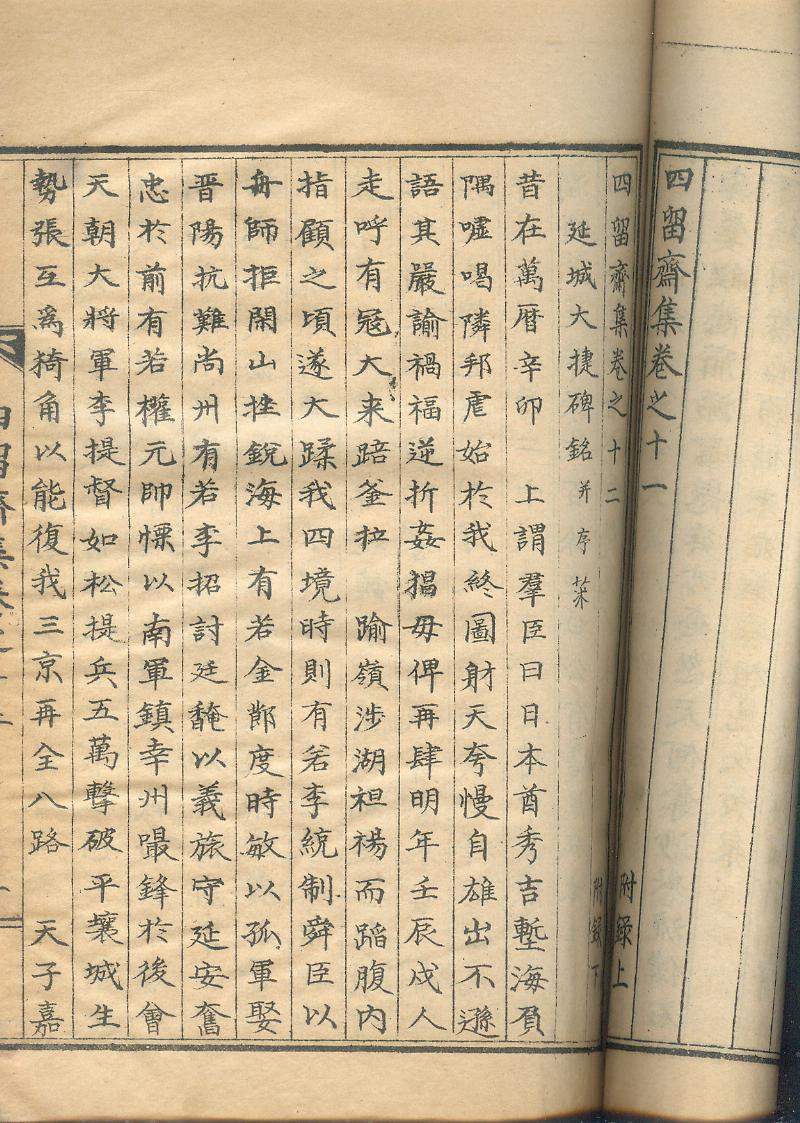 四留齋集卷之十一 附錄上
四留齋集卷之十二 附錄下
延城大捷碑銘 并序
昔在萬曆辛卯 上謂羣臣曰日本酋秀吉塹海負
隅嘘喝隣邦虐始於我終圖射天夸慢自雄出不遜
語其嚴諭禍福逆折姦猖毋俾再肆明年壬辰戍人
走呼有冦大来踣釜拉 踰嶺涉湖袒裼而蹈腹内
指顧之頃遂大蹂我四境時則有若李統制舜臣以
舟師拒閑山挫銳海上有若金莭度時敏以孤軍娶
晋陽抗難尚州有若李招討廷馣以義旅守延安奮
忠於前有若權元帥慄以南軍鎮幸州嘬鋒於後會
天朝大將軍李提督如松提兵五萬擊破平壤城生
勢張互爲猗角以能復我三京再全八路 天子嘉
四留齋集卷之十二